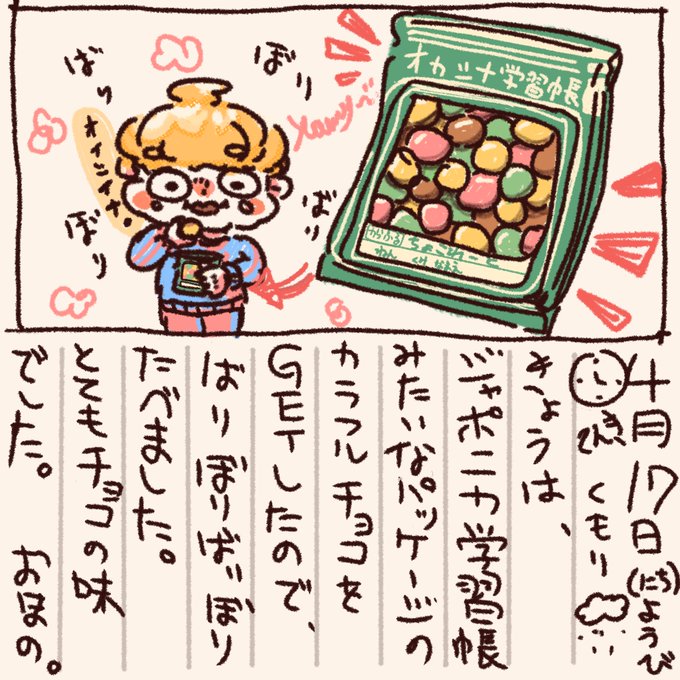 ばり
ぼり
オイシイナ。
ぼり
ばり
オカシナ学習帳
からふる ちょこれーと
ねん くみ なまえ
十月17日(にち)ようび
てんき くもり
きょうは、
ジャポニカ学習帳
みたいなパッケージの
カラフルチョコを
GETしたので、
ばりぼりばりぼり
たべました。
とてもチョコの味
でした。 おほの。